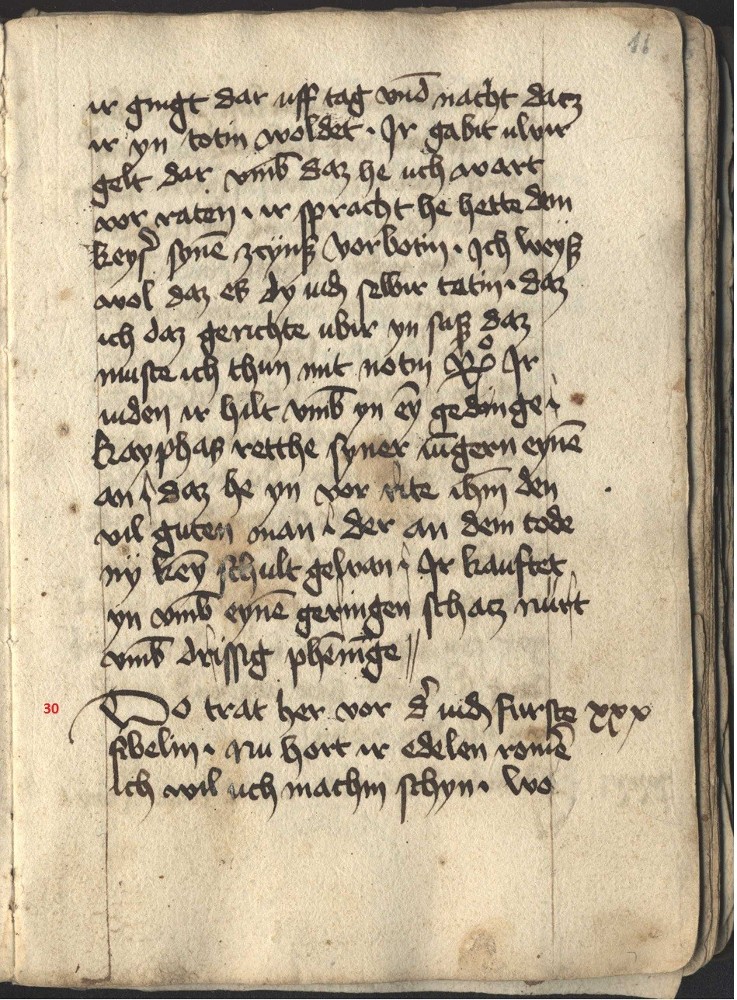 16
ir gingt dar uff tag vnd̄ nacht daz
ir yn totin woldet · Ir gabit uwir
gelt dar vmb̄ daz he uch wart
vor raten · ir spracht he hette dem
keyß synē zcynß vorbotin · Ich weyß
wol daz eß dy iudī selbir tatin · daz
ich daz gerichte ubir yn saß daz
muste ich thun mit notin Ir
iuden ir hilt vmb̄ yn eȳ gedinge
kayphas retthe syner iūgern eynē
an daz he yn vor rite ihm den
vil guten man der an dem tode
ny keȳ schult gewan Ir kauftet
yn vmb̄ eynē geringen schatz nurt
vmb̄ drissig phēnīge //
30 Do trat her vor d' iudī furste xxx
sibelin · Nu hort ir edelen romē
ich wil uch machin schyn · wo